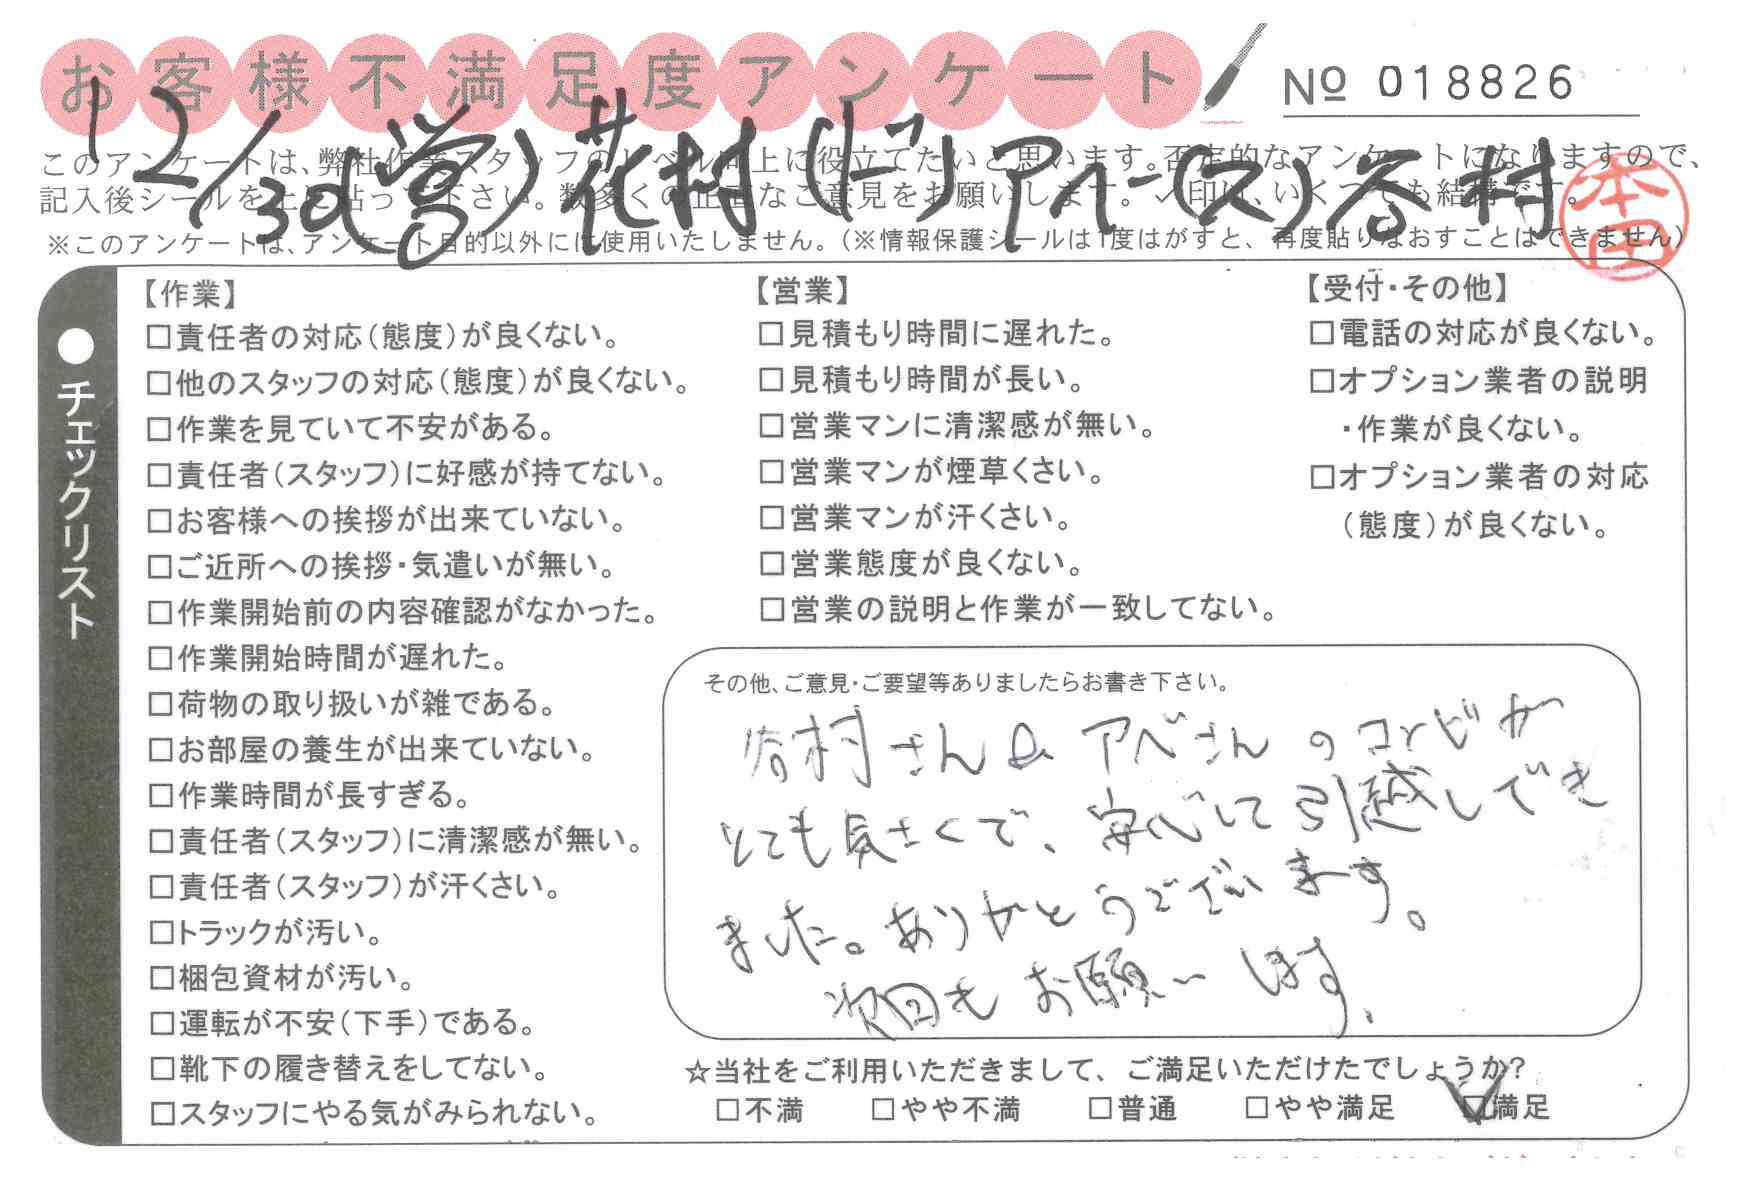 お客様不満足度アンケート
№ 018826
12/30(営)花村(ド)アベ(ス)谷村
本田
このアンケートは、弊社作業スタッフのレベル向上に役立てたいと思います。否定的なアンケートになりますので、
記入後シールを上に貼って下さい。数多くの正直なご意見をお願いします。✓印は、いくつでも結構です。
※このアンケートは、アンケート目的以外には使用いたしません。(※情報保護シールは1度はがすと、再度貼りなおすことはできません)
●チェックリスト
【作業】
□責任者の対応(態度)が良くない。
□他のスタッフの対応(態度)が良くない。
□作業を見ていて不安がある。
□責任者(スタッフ)に好感が持てない。
□お客様への挨拶が出来ていない。
□ご近所への挨拶・気遣いが無い。
□作業開始前の内容確認がなかった。
□作業開始時間が遅れた。
□荷物の取り扱いが雑である。
□お部屋の養生が出来ていない。
□作業時間が長すぎる。
□責任者(スタッフ)に清潔感が無い。
□責任者(スタッフ)が汗くさい。
□トラックが汚い。
□梱包資材が汚い。
□運転が不安(下手)である。
□靴下の履き替えをしてない。
□スタッフにやる気がみられない。
【営業】
□見積もり時間に遅れた。
□見積もり時間が長い。
□営業マンに清潔感が無い。
□営業マンが煙草くさい。
□営業マンが汗くさい。
□営業態度が良くない。
□営業の説明と作業が一致してない。
【受付・その他】
□電話の対応が良くない。
□オプション業者の説明
・作業が良くない。
□オプション業者の対応
(態度)が良くない。
その他、ご意見・ご要望等ありましたらお書き下さい。
谷村さん&アベさんのコンビが
とても気さくで、安心して引越しでき
ました。ありがとうございます。
次回もお願いします。
☆当社をご利用いただきまして、ご満足いただけたでしょうか?
□不満 □やや不満 □普通 □やや満足 ☑満足